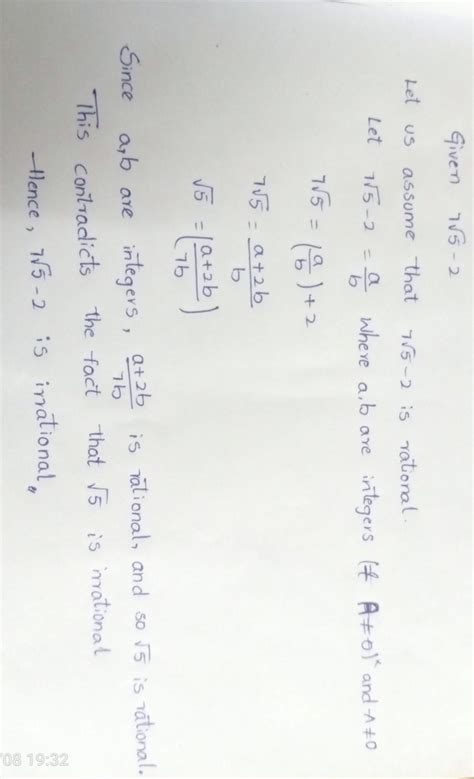 Given 7√5 - 2
Let us assume that 7√5 - 2 is rational.
Let 7√5 - 2 = a/b where a,b are integers (≠ A≠0) and ≠0
7√5 = (a/b) + 2
7√5 = a+2b/b
√5 = (a+2b/7b)
Since a,b are integers, a+2b/7b is rational, and so √5 is rational.
This contradicts the fact that √5 is irrational
Hence, 7√5 - 2 is irrational,,
08 19:32